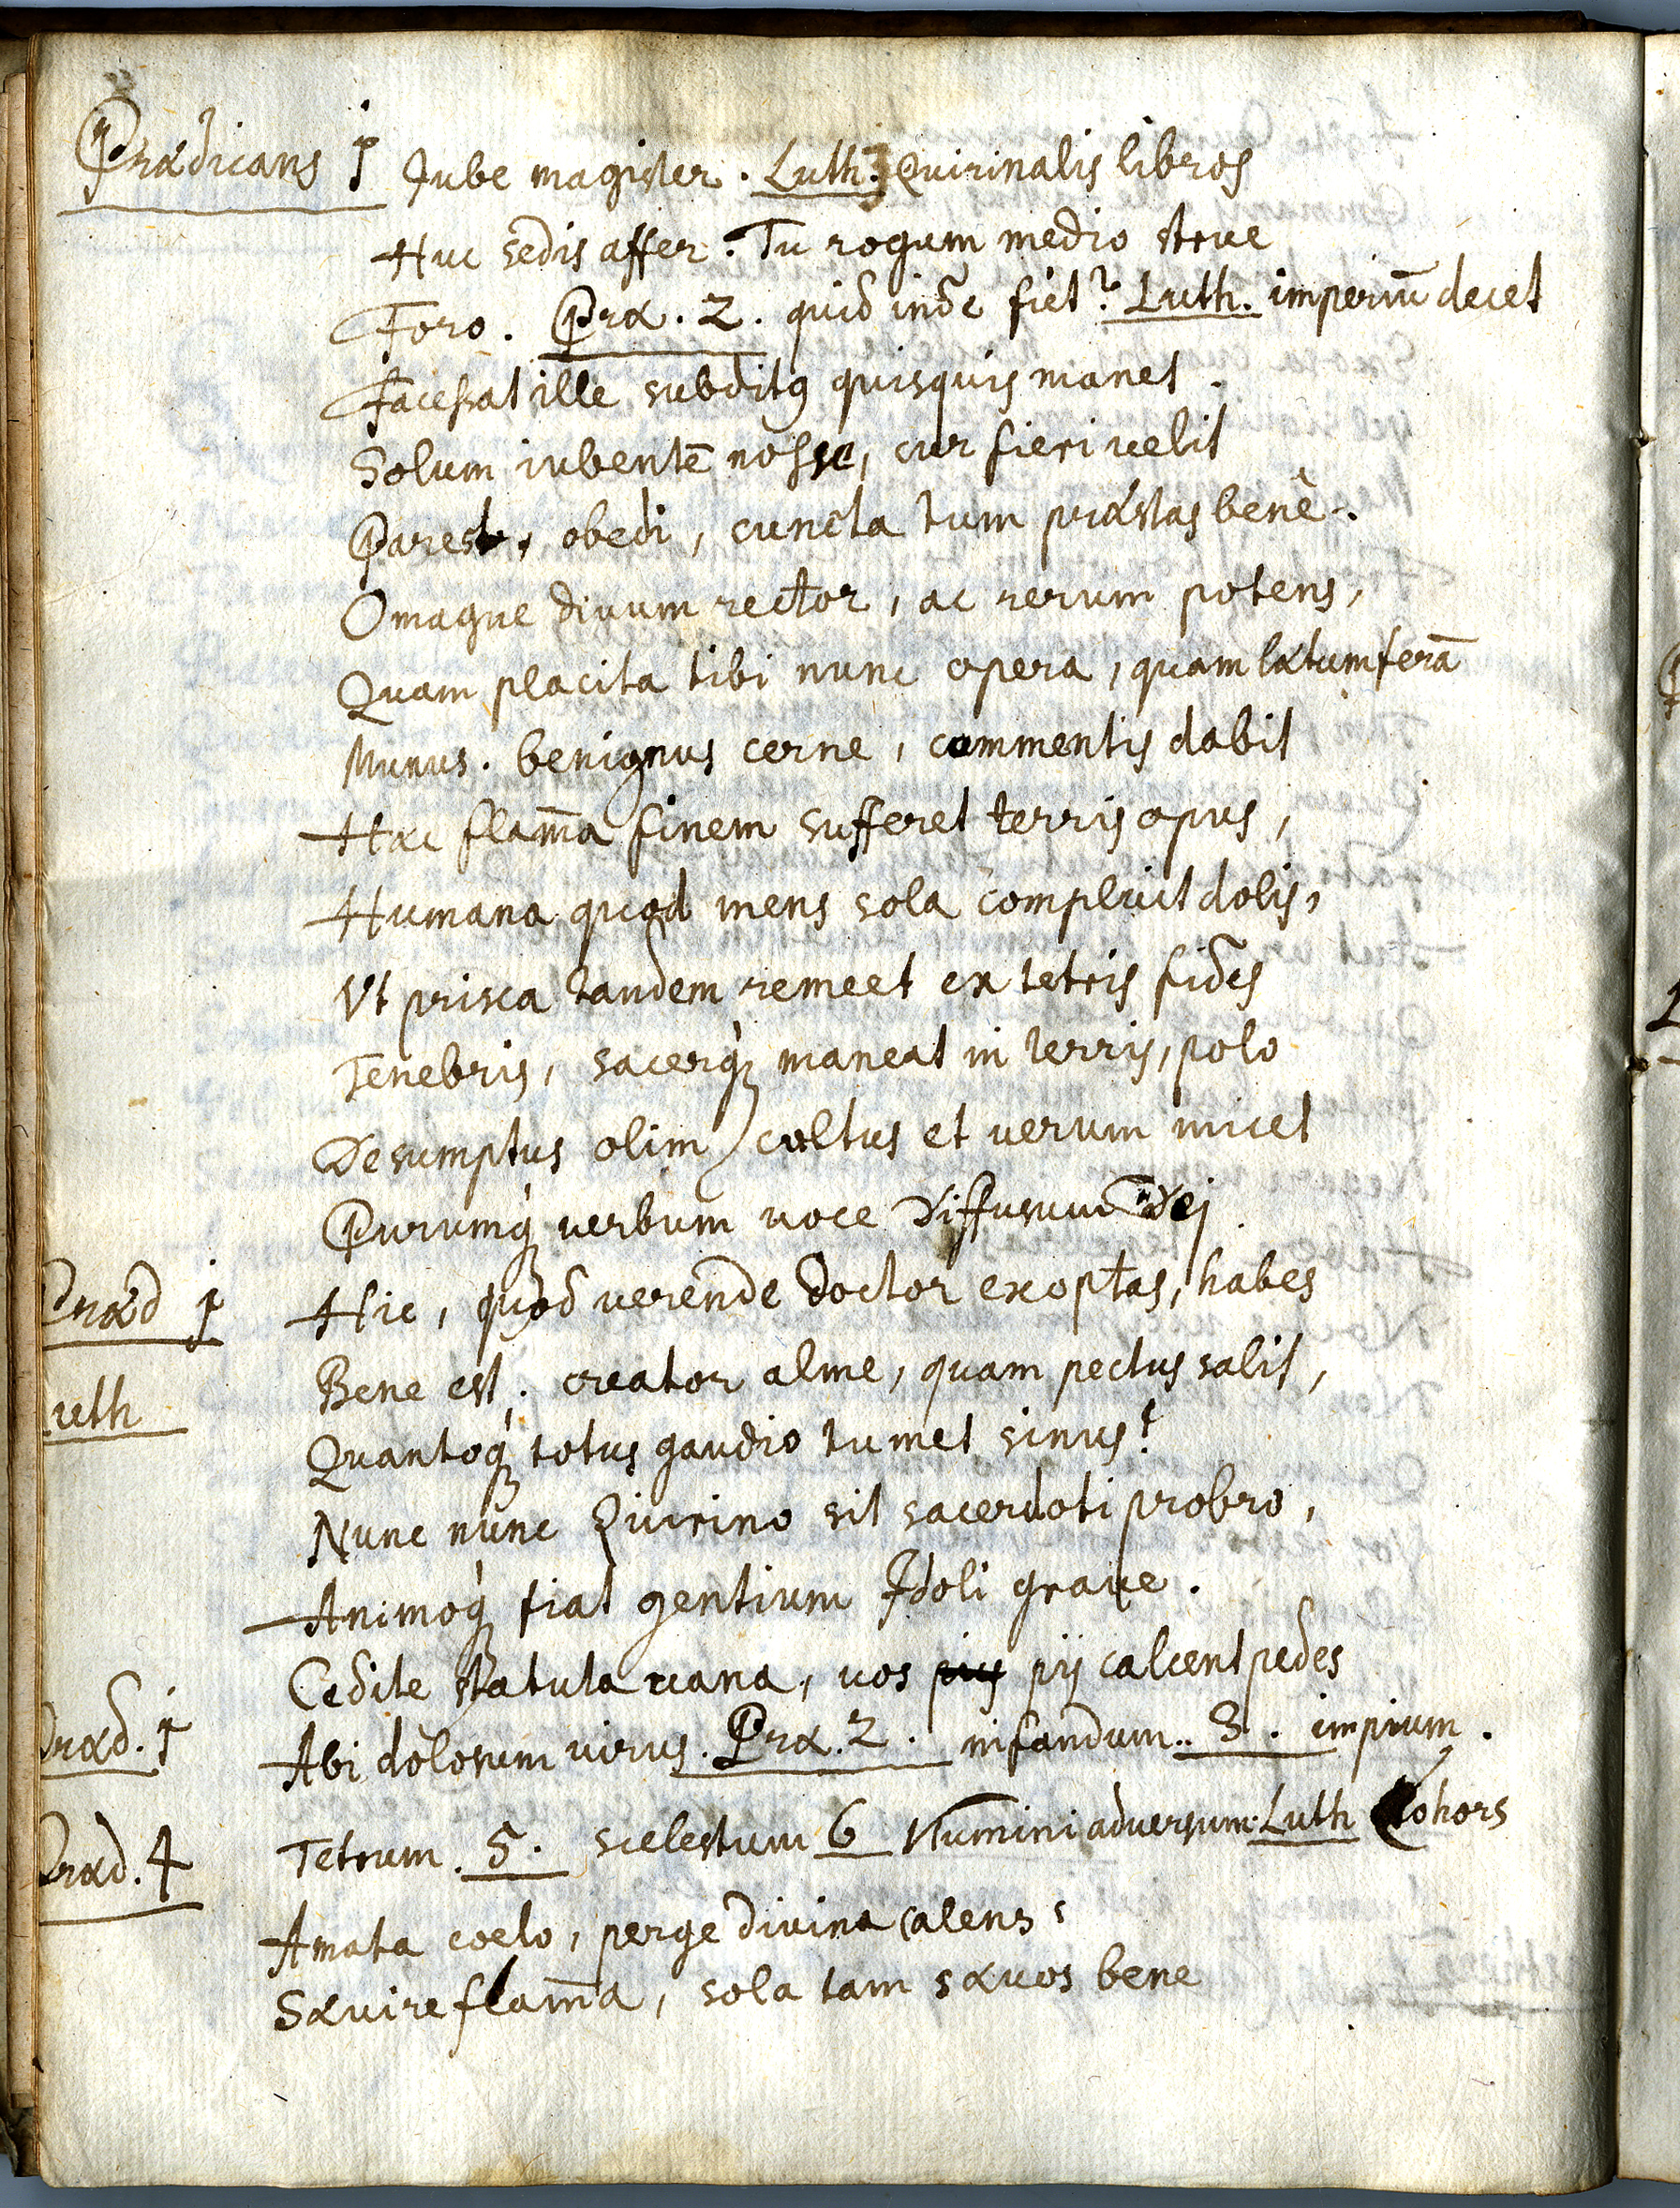 Prædicans 1 Jube magister. Luth: Quirinalis libros
Huc sedis affer. Tu rogum medio strue
Foro. Præ. 2. quid inde fiet? Luth. imperiū decet
Facessat ille subditꝰ quisquis manet.
Solum iubentē nosse, cur fieri velit
Pares, obedi, cuncta tum præstas bene.
O magne divum rector, ac rerum potens,
Quam placita tibi nunc opera, quam lætum ferā
Munus. benignus cerne, commentis dabit
Hæc flam̄a finem sufferet terris opus,
Humana quod mens sola compluit dolis,
Vt prisca tandem remeet ex tetris fides
Tenebris, sacerq; maneat in terris, polo
Desumptus olim) cultus et verum micet
Purumq; verbum voce diffusum Dei
Præd 1 Hic, quod verende doctor exoptas, habes
Luth Bene est. creator alme, quam pectus salit,
Quantoq; totus gaudio tumet sinus!
Nunc nunc Quirino sit sacerdoti probro,
Animoq; fiat gentium Idoli grave.
Cedite statuta vana, vos pij calcent pedes
Præd. 1 Abi dolosum virus. Præ. 2. nifandum. 3. impium.
Præd. 4 Tetrum. 5. scelestum 6 Numini adversum. Luth Cohors
Amata coelo, perge divina calens
Sævire flam̄a, sola tam sævos bene